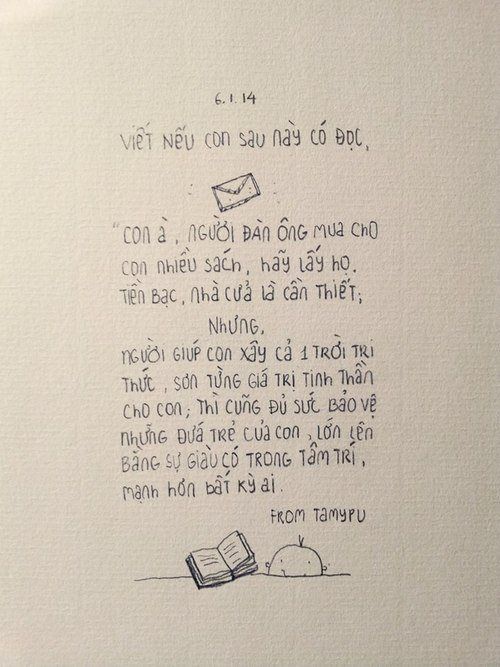 6.1.14
Viết nếu con sau này có đọc,
"Con à, người đàn ông mua cho
con nhiều sách, hãy lấy họ.
Tiền bạc, nhà cửa là cần thiết;
Nhưng,
người giúp con xây cả 1 trời tri
thức, sơn từng giá trị tinh thần
cho con; thì cũng đủ sức bảo vệ
những đứa trẻ của con, lớn lên
bằng sự giàu có trong tâm trí,
mạnh hơn bất kỳ ai.
From Tamypu